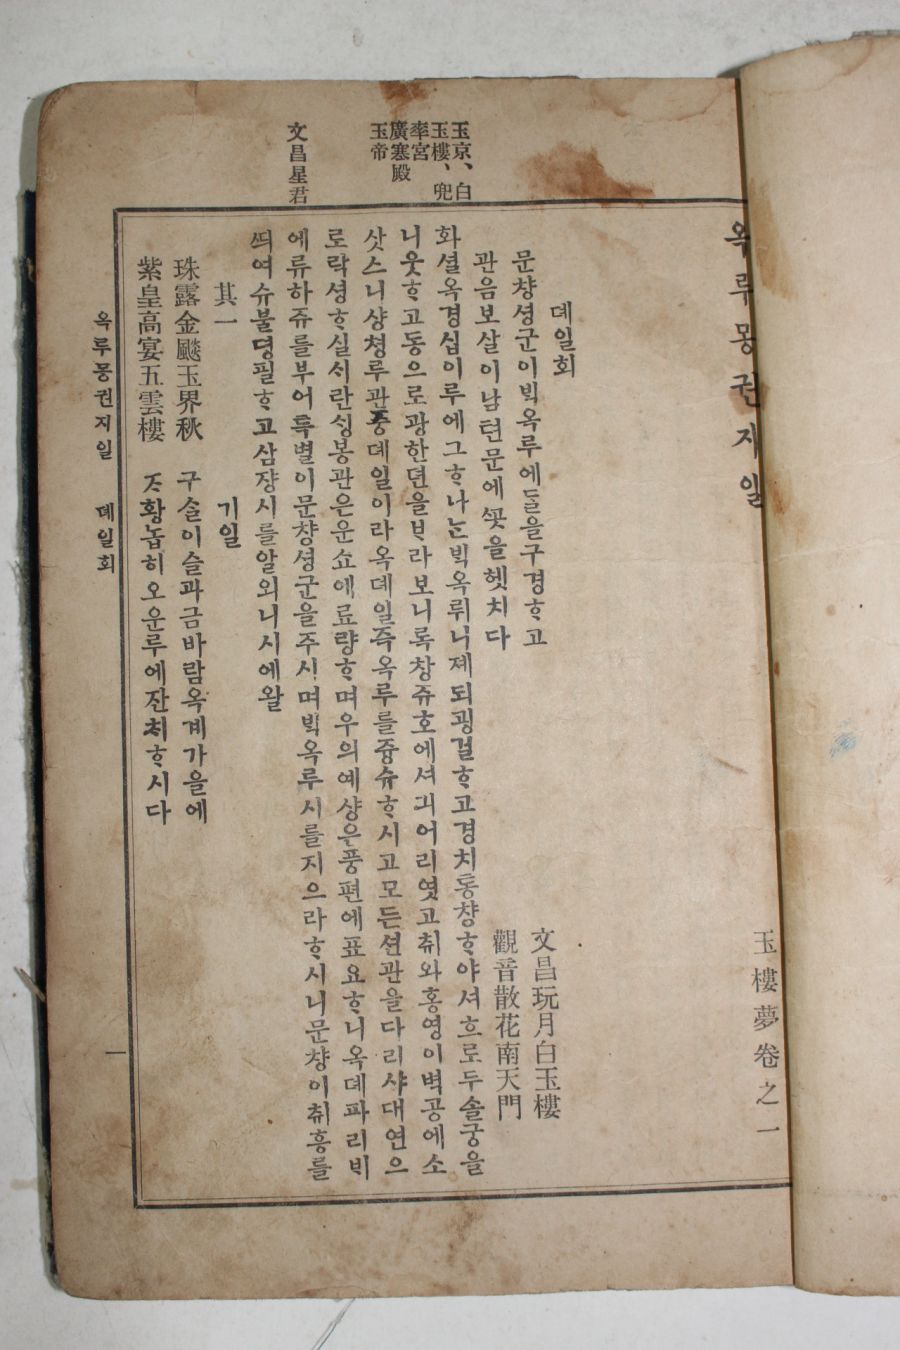 옥루몽권지일
玉樓夢卷之一
뎨일회
문챵셩군이ᄇᆡᆨ옥루에ᄃᆞᆯ을구경ᄒᆞ고
文昌玩月白玉樓
관음보살이남텬문에ᄭᅩᆺ을헷치다
觀音散花南天門
화셜옥경십이루에그ᄒᆞ나ᄂᆞᆫᄇᆡᆨ옥뤼니졔되굉걸ᄒᆞ고경치통챵ᄒᆞ야셔흐로두솔궁을
니웃ᄒᆞ고동으로광한뎐을ᄇᆞ라보니록창쥬호에셔긔어리엿고취와홍영이벽공에소
삿스니샹쳥루관즁뎨일이라옥뎨일즉옥루를즁슈ᄒᆞ시고모든션관을다리샤대연으
로락셩ᄒᆞ실ᄉᆡ란ᄉᆡᆼ봉관은운쇼에료량ᄒᆞ며우의예샹은풍편에표요ᄒᆞ니옥뎨파리ᄇᆡ
에류하쥬를부어특별이문챵셩군을주시며ᄇᆡᆨ옥루시를지으라ᄒᆞ시니문챵이취흥를
ᄯᅴ여슈불뎡필ᄒᆞ고삼쟝시를알외니시에왈
其一
기일
珠露金飈玉界秋
구슬이슬과금바람옥계가을에
紫皇高宴五雲樓
ᄌᆞ황놉히오운루에잔ᄎᆡᄒᆞ시다
玉京、白
玉樓、兜
率宮
廣寒殿
玉帝
文昌星君
옥루몽권지일 뎨일회
一